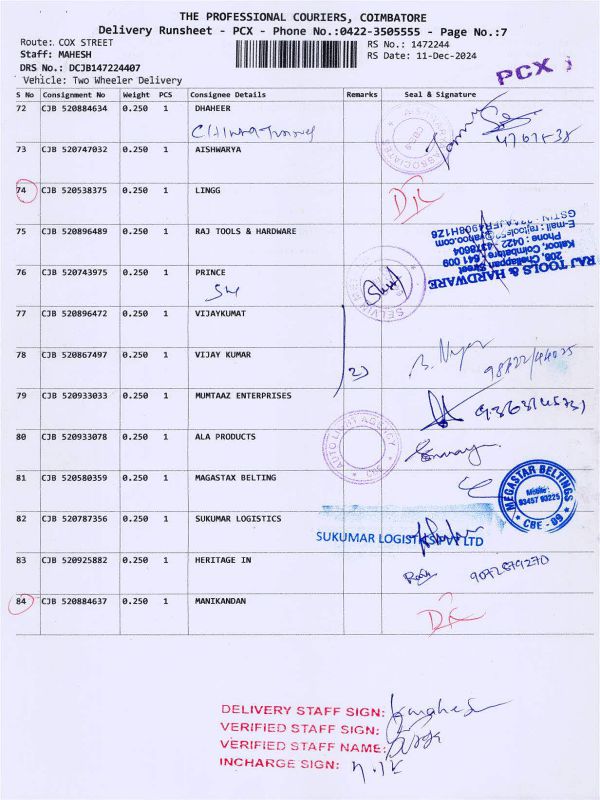 THE PROFESSIONAL COURIERS, COIMBATORE
Delivery Runsheet - PCX - Phone No.:0422-3505555 - Page No.:7
Route: COX STREET
RS No.: 1472244
Staff: MAHESH
RS Date: 11-Dec-2024
DRS No.: DCJB147224407
Vehicle: Two Wheeler Delivery
PCX
S No Consignment No Weight PCS Consignee Details Remarks Seal & Signature
72 CJB 520884634 0.250 1 DHAHEER
73 CJB 520747032 0.250 1 AISHWARYA
ASSOCIATES
74 CJB 520538375 0.250 1 LINGG
75 CJB 520896489 0.250 1 RAJ TOOLS & HARDWARE
RAJ TOOLS & HARDWARE
209, Chellappan Street
Katoor, Coimbatore - 641 009
Phone : 0422 - 4378604
76 CJB 520743975 0.250 1 PRINCE
77 CJB 520896472 0.250 1 VIJAYKUMAT
78 CJB 520867497 0.250 1 VIJAY KUMAR
79 CJB 520933033 0.250 1 MUMTAAZ ENTERPRISES
80 CJB 520933078 0.250 1 ALA PRODUCTS
AUTO LIGHT AGENCY
81 CJB 520580359 0.250 1 MAGASTAX BELTING
MEGASTAR BELTINGS
Mobile :
93457 93225
CBE - 09
82 CJB 520787356 0.250 1 SUKUMAR LOGISTICS
SUKUMAR LOGISTICS PVT LTD
83 CJB 520925882 0.250 1 HERITAGE IN
84 CJB 520884637 0.250 1 MANIKANDAN
DELIVERY STAFF SIGN:
VERIFIED STAFF SIGN:
VERIFIED STAFF NAME:
INCHARGE SIGN: